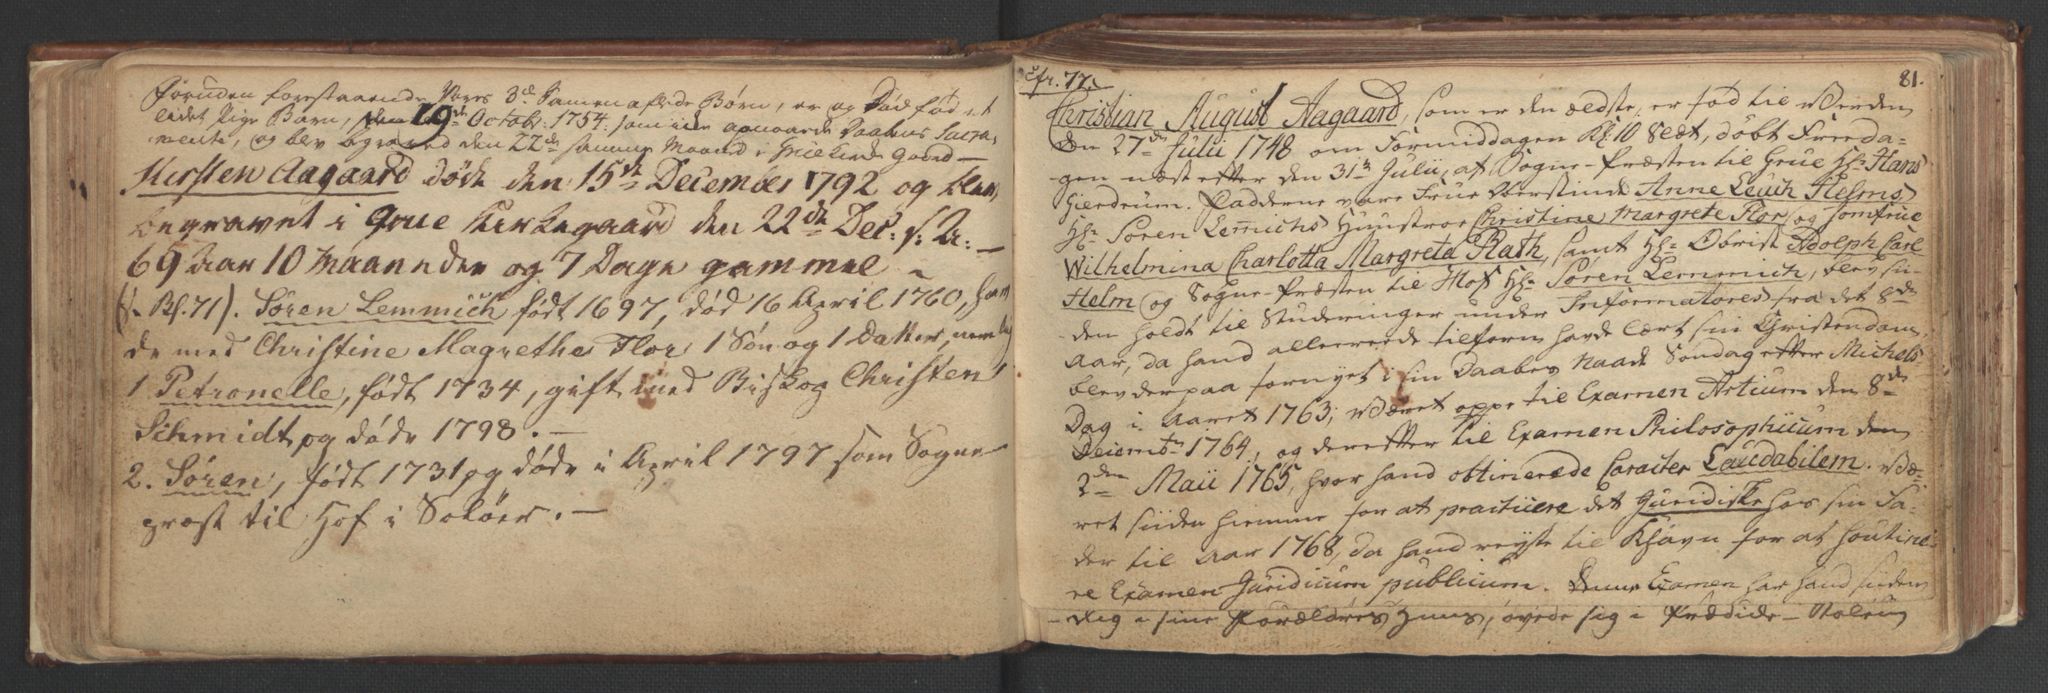 Foruden forestaaende Vores 3de Sammenaflede Børn, er og Død fød et
lidet Pige Barn, 19de Octobr. 1754. som iche annaaede Daabens Sacra-
mente, og blev begraved den 22de samme Maaned i Grue Kirke Gaard —
Kirsten Aagaard døde den 15de December 1792 og blev
begravet i Grue Kirkegaard den 22de Dec: s: A: —
69 Aar 10 Maaneder og 7 Dage gammel
(s. Bl. 71). Søren Lemmich født 1697, død 16 April 1760, hav-
de med Christine Magrethe Flor 1 Søn og 1 Datter, nemlig
1 Petronelle, født 1734, gift med Biskop Christen
Schmidt og døde 1798. —
2. Søren, født 1731 og døde i April 1797 som Sogne-
præst til Hof i Soløer. —
cfr. 77. 81.
Christian August Aagaard, som er den ældste, er fød til Verden
den 27de Julii 1748 om Formiddagen Kl: 10 Slæt, døbt Freeda-
gen næst efter den 31te Julii, af Sogne-Præsten til Grue Hr: Hans
Gierdrum. Fadderne vare Frue Oberstinde Anne Leuch Helms
Hr: Søren Lemmichs Huustroe Christine Margrete Flor og Jomfrue
Wilhelmina Charlotta Margreta Rath, samt Hr: Obrist Adolph Carl
Helm og Sogne-Præsten til Hof Hr: Søren Lemmich, blev si-
den holdt til Studeringer under Informatores fra det 8de
Aar, da hand allereede tilforn havde lært sin Christendom,
blev derpaa fornyet i sin Daabes Naade Søndag efter Michels
Dag i Aaret 1763; Været oppe til Examen Artium den 8de
Decembr. 1764, og derefter til Examen Philosophicum den
2den Maii 1765, hvor hand obtinerede Caracter Laudabilem. Væ-
ret siiden hiemme for at practicere det Juridiske hos sin Fa-
der til Aar 1768, da hand reyste til Khavn for at
re Examen Juridicum publicum. Denne Examen har hand siiden
dlig i sine Forældres Huus, øvede sig i Prædike-Stolen